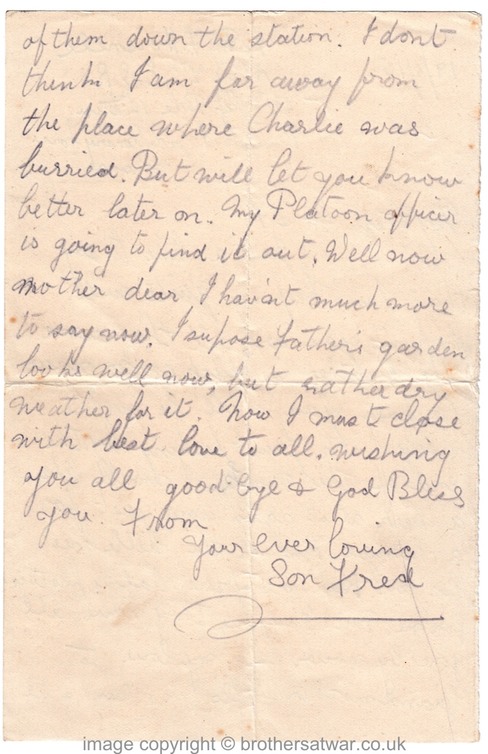 of them down the station. I dont
think I am far away from
the place where Charlie was
burried. But will let you know
better later on. My Platoon officer
is going to find it out. Well now
mother dear I hav'nt much more
to say now. I supose Father's garden
looks well now, but rather dry
weather for it. Now I must close
with best love to all. wishing
you all good-bye & God Bless
you. From
Your ever loving
Son Fred
image copyright © brothersatwar.co.uk